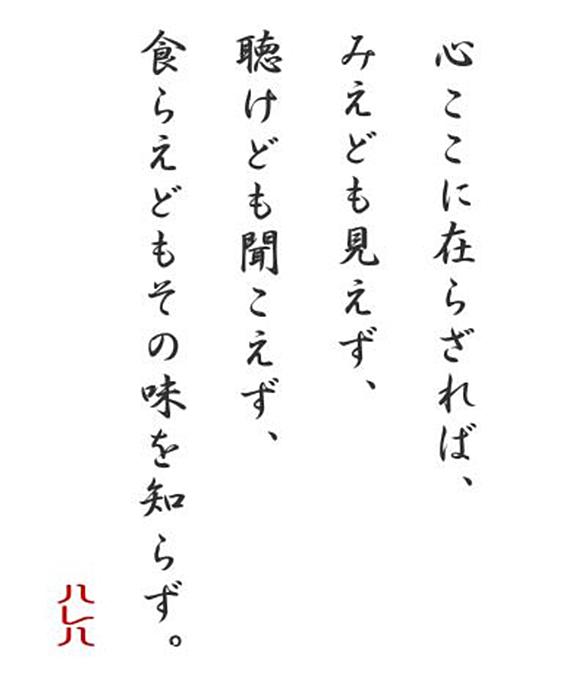 心ここに在らざれば、
みえども見えず、
聴けども聞こえず、
食らえどもその味を知らず。
ハレハ